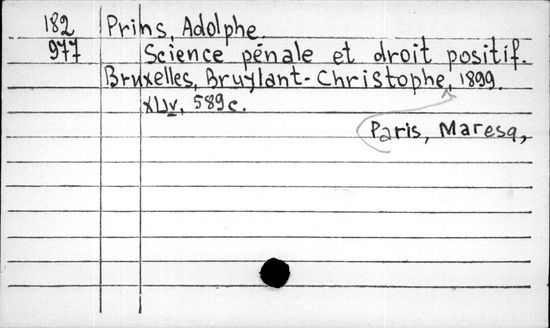 182 Prins, Adolphe.
977 Science pénale et droit positif.
Bruxelles, Bruylant-Christophe, 1899.
XLIV, 589 c.
Paris, Maresq,